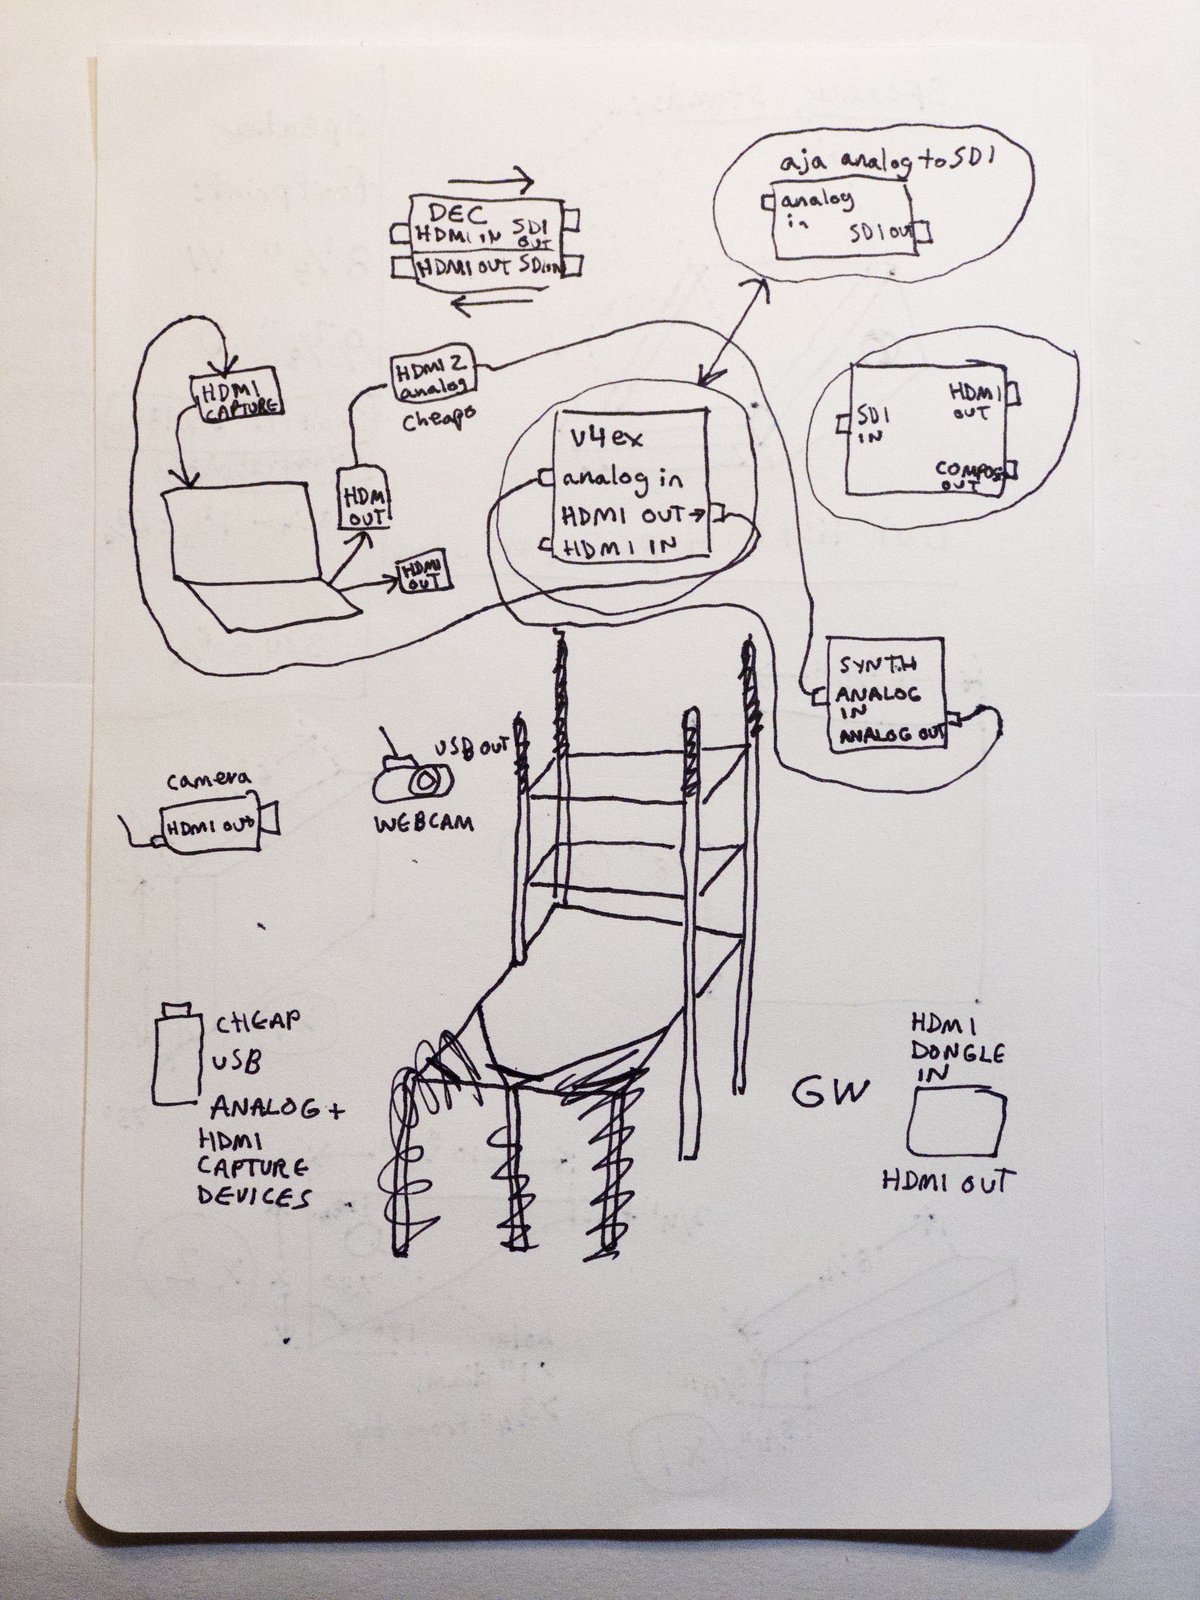 aja analog to SDI
analog
in
SDI OUT
DEC
HDMI IN SDI
OUT
HDMI OUT SDI IN
HDMI
CAPTURE
HDMI 2
analog
cheapo
HDMI
OUT
HDMI
OUT
v4ex
analog in
HDMI OUT→
HDMI IN
SDI
IN
HDMI
OUT
COMPOS
OUT
SYNTH
ANALOG
IN
ANALOG OUT
USB OUT
WEBCAM
camera
HDMI OUT
CHEAP
USB
ANALOG +
HDMI
CAPTURE
DEVICES
GW
HDMI
DONGLE
IN
HDMI OUT